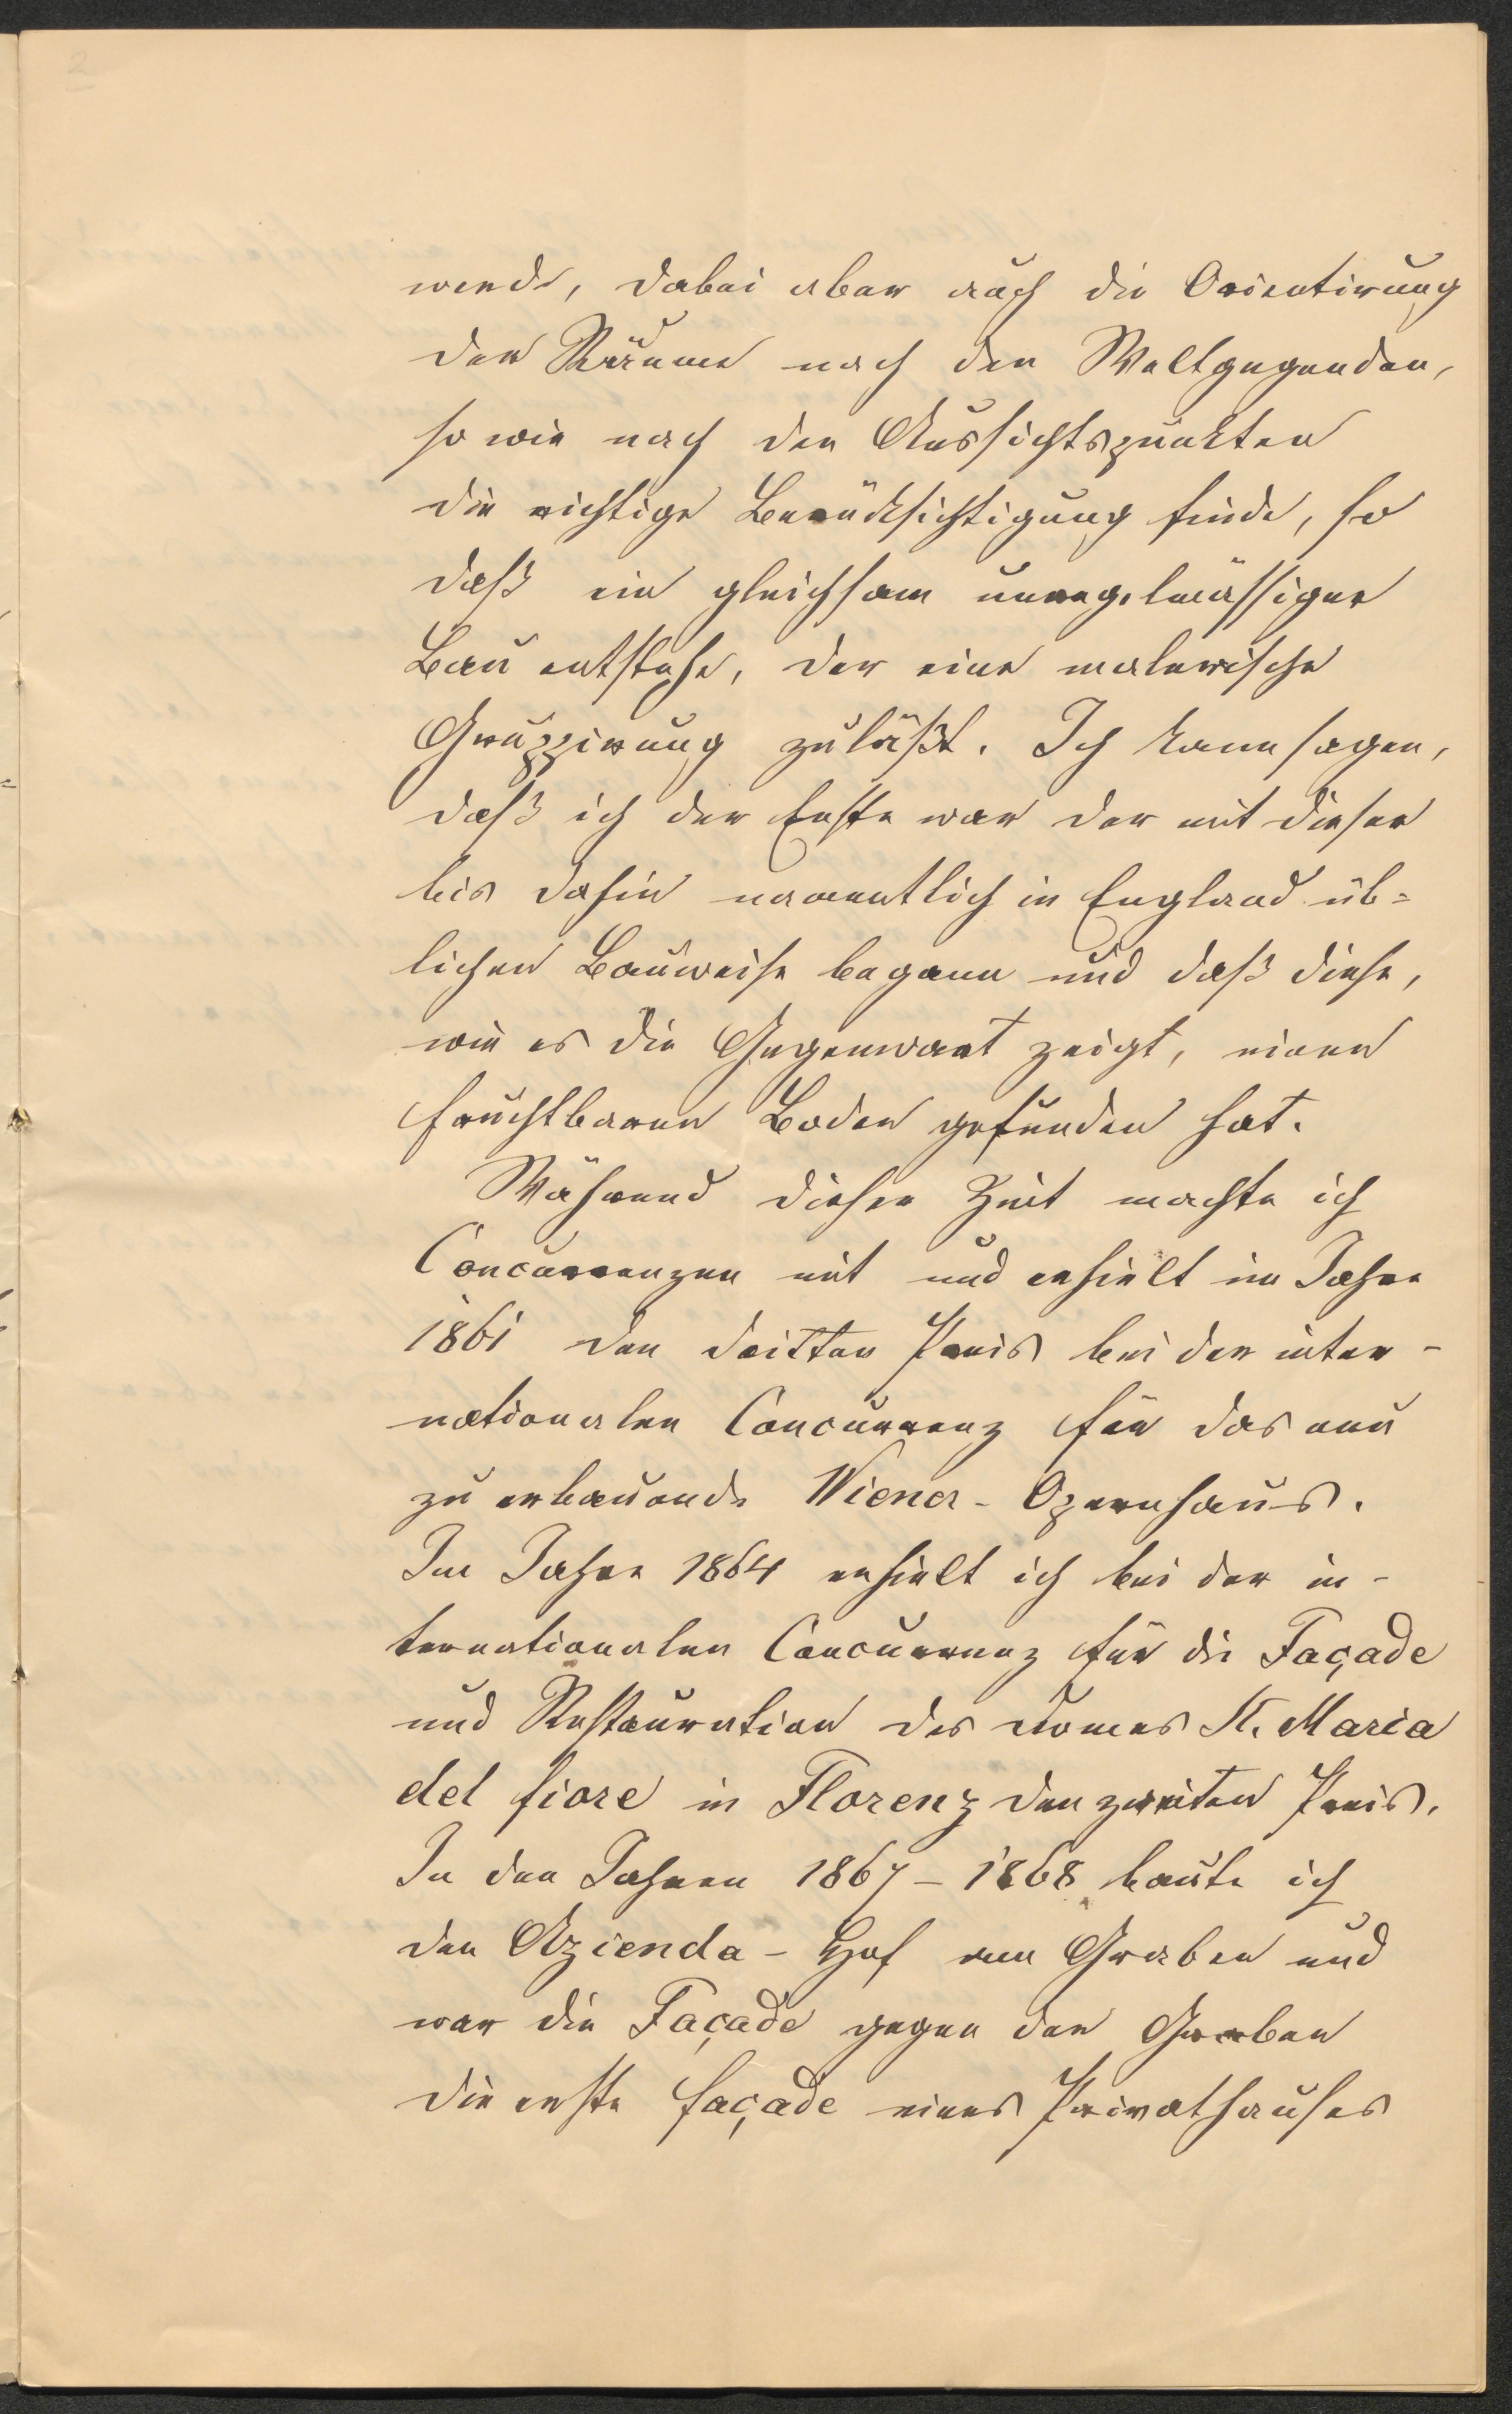 2
werde, dabei aber auch die Orientirung
der Räume nach den Weltgegenden,
so wie nach den Aussichtspunkten
die richtige Berücksichtigung finde, so
daß ein gleichsam unregelmässiger
Bau entstehe, der eine malerische
Gruppirung zuläßt. Ich kann sagen,
daß ich der Erste war der mit dieser
bis dahin namentlich in England üb=
lichen Bauweise begann und daß diese,
wie es die Gegenwart zeigt, einen
fruchtbaren Boden gefunden hat.
Während dieser Zeit machte ich
Concurrenzen mit und erhielt im Jahre
1861 den dritten Preis bei der inter-
nationalen Concurrenz für das neu
zu erbauende Wiener-Opernhaus.
Im Jahre 1864 erhielt ich bei der in-
ternationalen Concurrenz für die Façade
und Restauration des Domes St. Maria
del fiore in Florenz den zweiten Preis.
In den Jahren 1867-1868 baute ich
den Azienda-Hof am Graben und
war die Façade gegen den Graben
die erste façade eines Privathauses